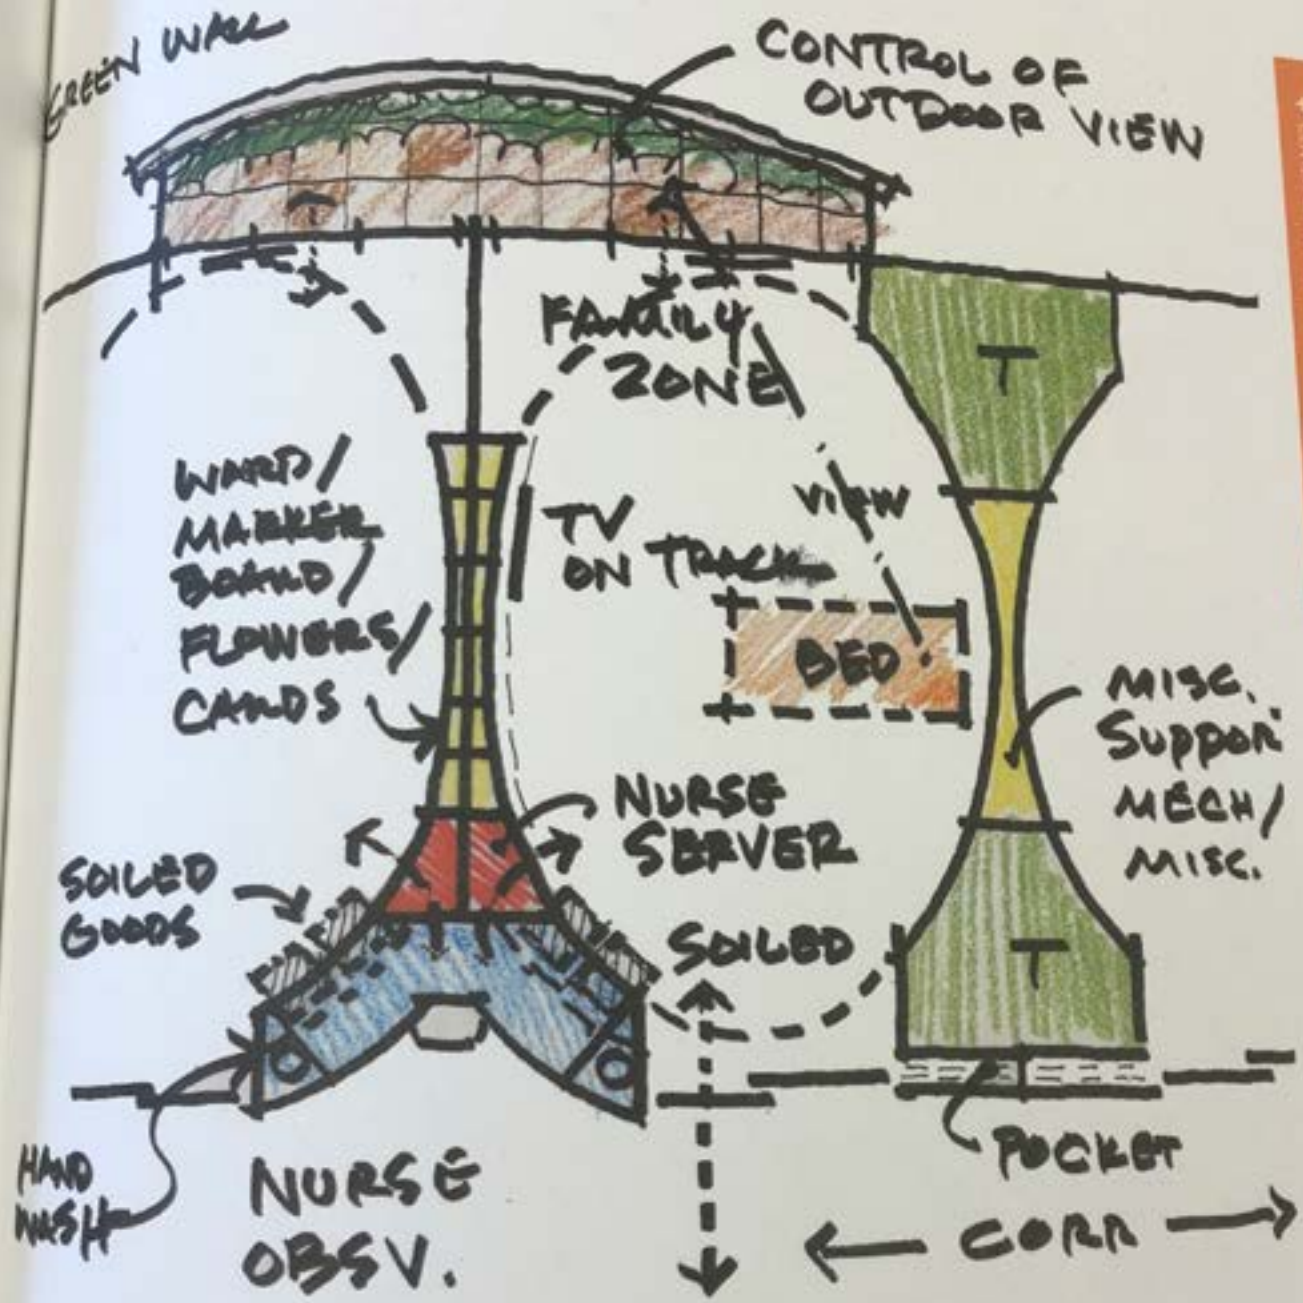 GREEN WALL
CONTROL OF
OUTDOOR VIEW
FAMILY
ZONE
T
WARD/
MARKER
BOARD/
FLOWERS/
CARDS
TV
ON TRACK
VIEW
BED
MISC.
SUPPOR
MECH/
MISC.
NURSE
SERVER
SOILED
GOODS
SOILED
T
HAND
WASH
NURSE
OBSV.
POCKET
CORR